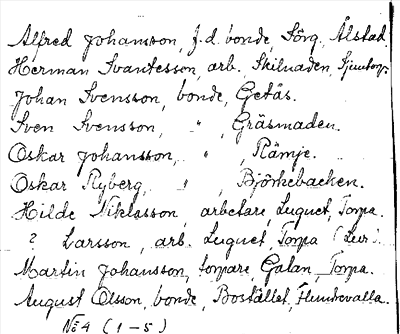 Alfred Johansson, f.d. bonde, Sörg. Ålstad.
Herman Svantesson, arb. Skilnaden,
Johan Svensson, bonde, Getås.
Sven Svensson, " , Gräsmaden.
Oskar Johansson, " , Rämje.
Oskar Ryberg, " , Björkebacken.
Hilde Niklasson, arbetare, Lugnet, Torpa.
? Larsson, arb. Lugnet, Torpa
Martin Johansson, torpare, Galan, Torpa.
August Olsson, bonde, Bostället,
No 4 (1-5)